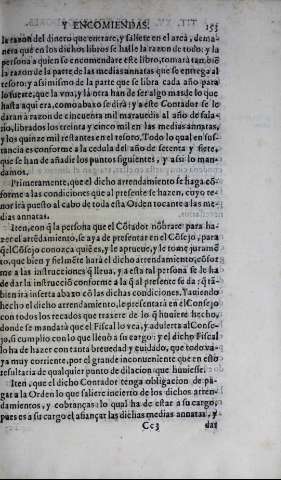 Y ENCOMIENDAS. 153
la razon del dinero que entrare, y saliere en el arca, de ma-
nera que en los dichos libros se halle la razon de todo: y la
persona a quien se encomendare este libro, tomará tambiẽ
la razon de la parte de las medias annatas que se entrega al
tesoro: y assimismo de la parte que se libra cada año para
lo susto, que la vna, y la otra han de ser algo mas de lo que
hasta aqui era, como abaxo se dirá: y a este Contador se le
daran a razon de cincuenta mil marauedis al año de sala-
rio, librados los treinta y cinco mil en las medias annatas,
y los quinze mil restantes en el tesoro. Todo lo qual en sus-
tancia es conforme a la cedula del año de setenta y siete,
que se han de añadir los puntos siguientes, y assi lo man-
damos.
Primeramente, que el dicho arrendamiento se haga cõ-
forme a las condiciones que al presente se hazen, cuyo te-
nor irá puesto al cabo de toda esta Orden tocante a las me-
dias annatas.
Iten, con q̃ la persona que el Cõtador nõbrare para ha-
zer el arrẽdamiẽto, se aya de presentar en el Cõsejo, para
q̃ el Cõsejo conozca quiẽ es, y le aprueue, y le tome juramẽ-
to, que bien y fielmẽte hará el dicho arrendamiẽto, cõfor
me a las instrucciones q̃ lleua, y a esta tal persona se le ha
de dar la instrucciõ conforme a la q̃ al presente se da; q̃ tã-
bien irá inserta abaxo cõ las dichas condiciones. Y auiendo
hecho el dicho arrendamiento, le presentará en el Cõsejo
con todos los recados que traxere de lo q̃ huuiere hecho,
donde se mandará que el Fiscal lo vea, y aduierta al Conse-
jo, si cumplio con lo que lleuò a su cargo: y el dicho Fiscal
lo ha de hazer con tanta breuedad y cuidado, que todo va-
ya muy corriente, por el grande inconueniente que en esto
resultaria de qualquier punto de dilacion que huuiesse.
Iten, que el dicho Contador tenga obligacion de pa-
gar a la Orden lo que saliere incierto de los dichos arren-
damientos, y cobranças: lo qual ha de estar a su cargo,
pues es a su cargo el afiançar las dichas medias annatas, y
Cc3 dar